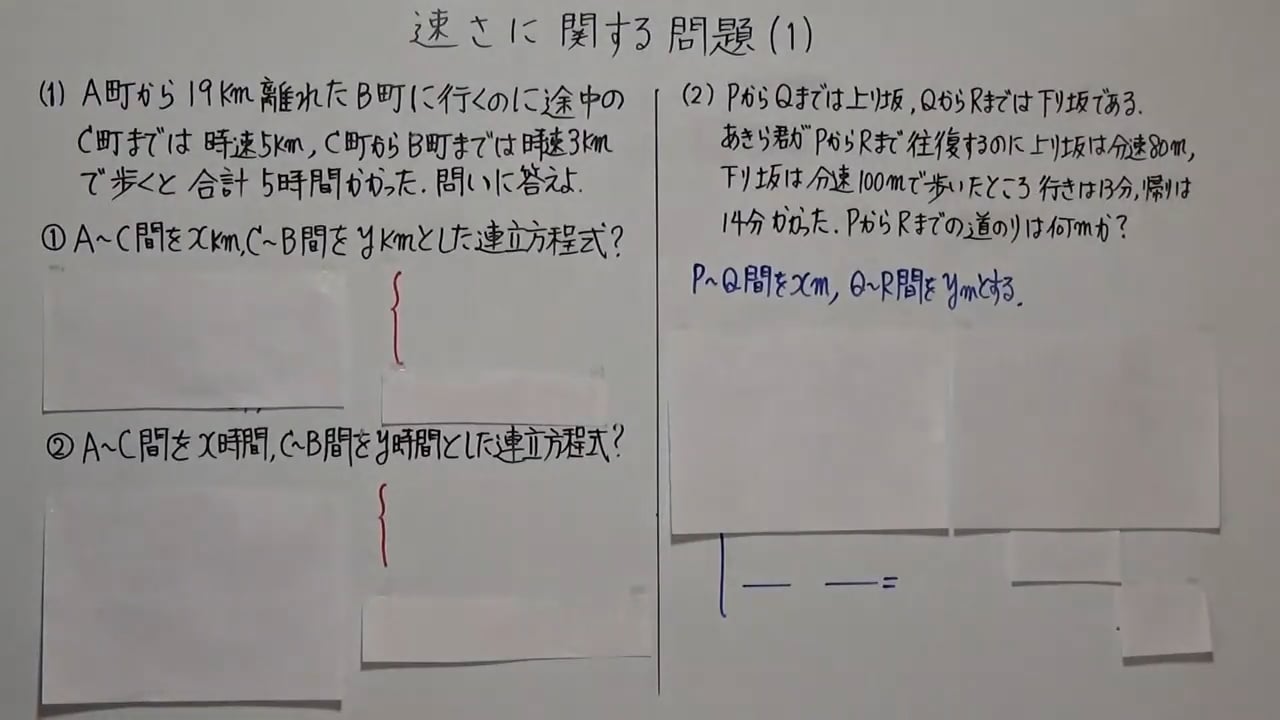 速さに関する問題(1)
(1) A町から19km離れたB町に行くのに途中の
C町までは時速5km, C町からB町までは時速3km
で歩くと合計5時間かかった. 問いに答えよ.
① A~C間をxkm, C~B間をykmとした連立方程式?
② A~C間をx時間, C~B間をy時間とした連立方程式?
(2) PからQまでは上り坂, QからRまでは下り坂である.
あきら君がPからRまで往復するのに上り坂は分速80m,
下り坂は分速100mで歩いたところ行きは13分, 帰りは
14分かかった. PからRまでの道のりは何mか?
P~Q間をxm, Q~R間をymとする.
=